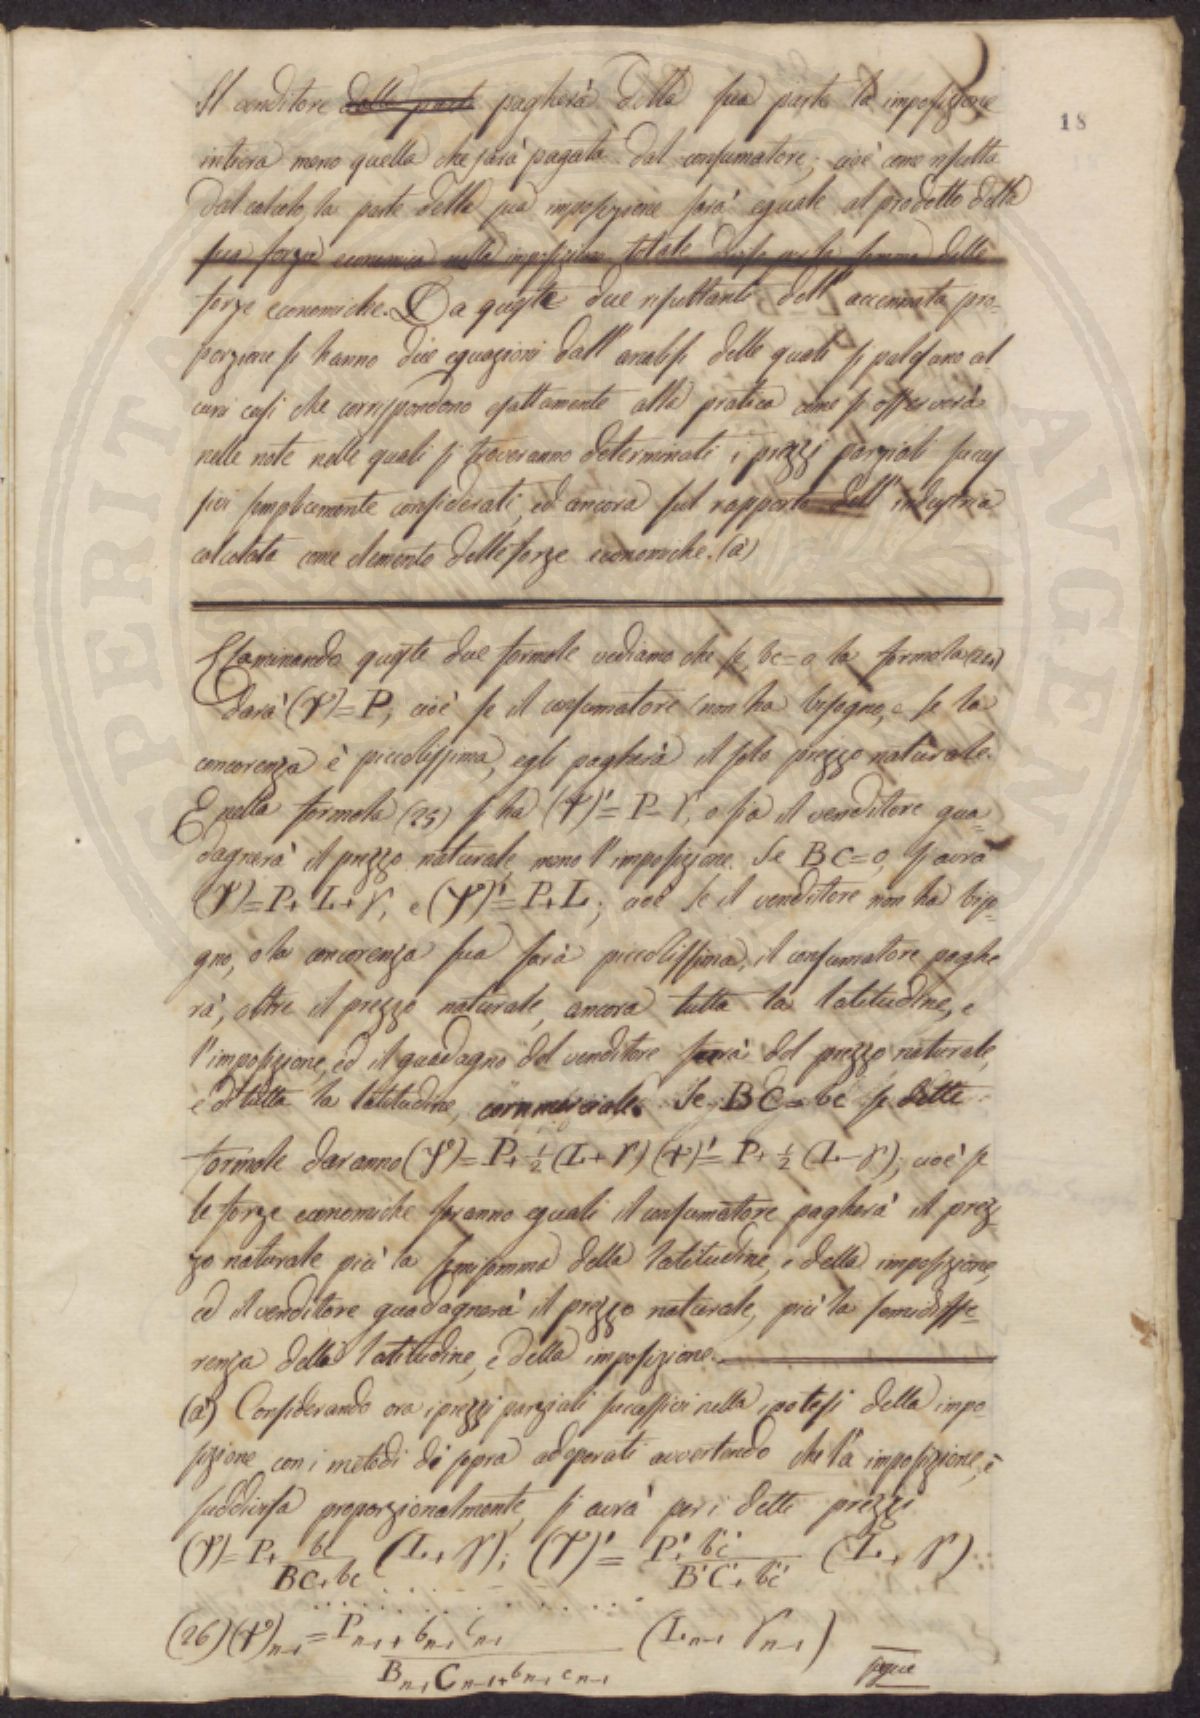 Il venditore dalla parte pagherà della sua parte la imposizione
18
intiera meno quella che sarà pagata dal consumatore; cioè come risulta
dal calcolo, la parte della sua imposizione sarà eguale al prodotto della
sua forza economica nella imposizione totale diviso per la somma delle
forze economiche. Da queste due risultanti dell' accennata pro-
porzione si hanno due equazioni dall' analisi delle quali si palesano al
cuni casi che corrispondono esattamente alla pratica come si osserverà
nelle note nelle quali si troveranno determinati i prezzi parziali succes
sivi semplicemente considerati, ed ancora sul rapporto dell' industria
calcolata come elemento delle forze economiche. (a)
Esaminando queste due formole vediamo che se bc=0 la formola (24)
darà (Ψ)=P, cioè se il consumatore non ha bisogno, e se la
concorenza è piccolissima, egli pagherà il solo prezzo naturale.
E nella formola (25) si ha (Ψ)'=P-γ, o sia il venditore gua-
dagnerà il prezzo naturale, meno l'imposizione. Se BC=0, si avrà
(Ψ)=P+L+γ, e (Ψ)'=P+L; cioè se il venditore non ha biso-
gno, o la concorenza sua sarà piccolissima, il consumatore paghe
rà, oltre il prezzo naturale, ancora tutta la latitudine, e
l'imposizione, ed il guadagno del venditore sarà del prezzo naturale,
e di tutta la latitudine, commerciale. Se BC=bc le dette
formole daranno (Ψ)=P+½(L+γ) (Ψ)'=P+½(L-γ); cioè se
le forze economiche saranno eguali il consumatore pagherà il prez-
zo naturale più la semisomma della latitudine, e della imposizione,
ed il venditore guadagnerà il prezzo naturale, più la semidiffe-
renza della latitudine, e della imposizione.
(a) Considerando ora i prezzi parziali successivi nella ipotesi della impo-
sizione, con i metodi di sopra adoperati avvertendo che la imposizione, è
suddivisa proporzionalmente, si avrà per i detti prezzi
(Ψ)=P+ bc/BC+bc (L+γ); (Ψ)'=P'+ b'c'/B'C'+b'c' (L'+γ')
(26) (Ψ)n-1 = Pn-1 + bn-1 cn-1/Bn-1 Cn-1+bn-1 cn-1 (Ln-1 γn-1)
segue